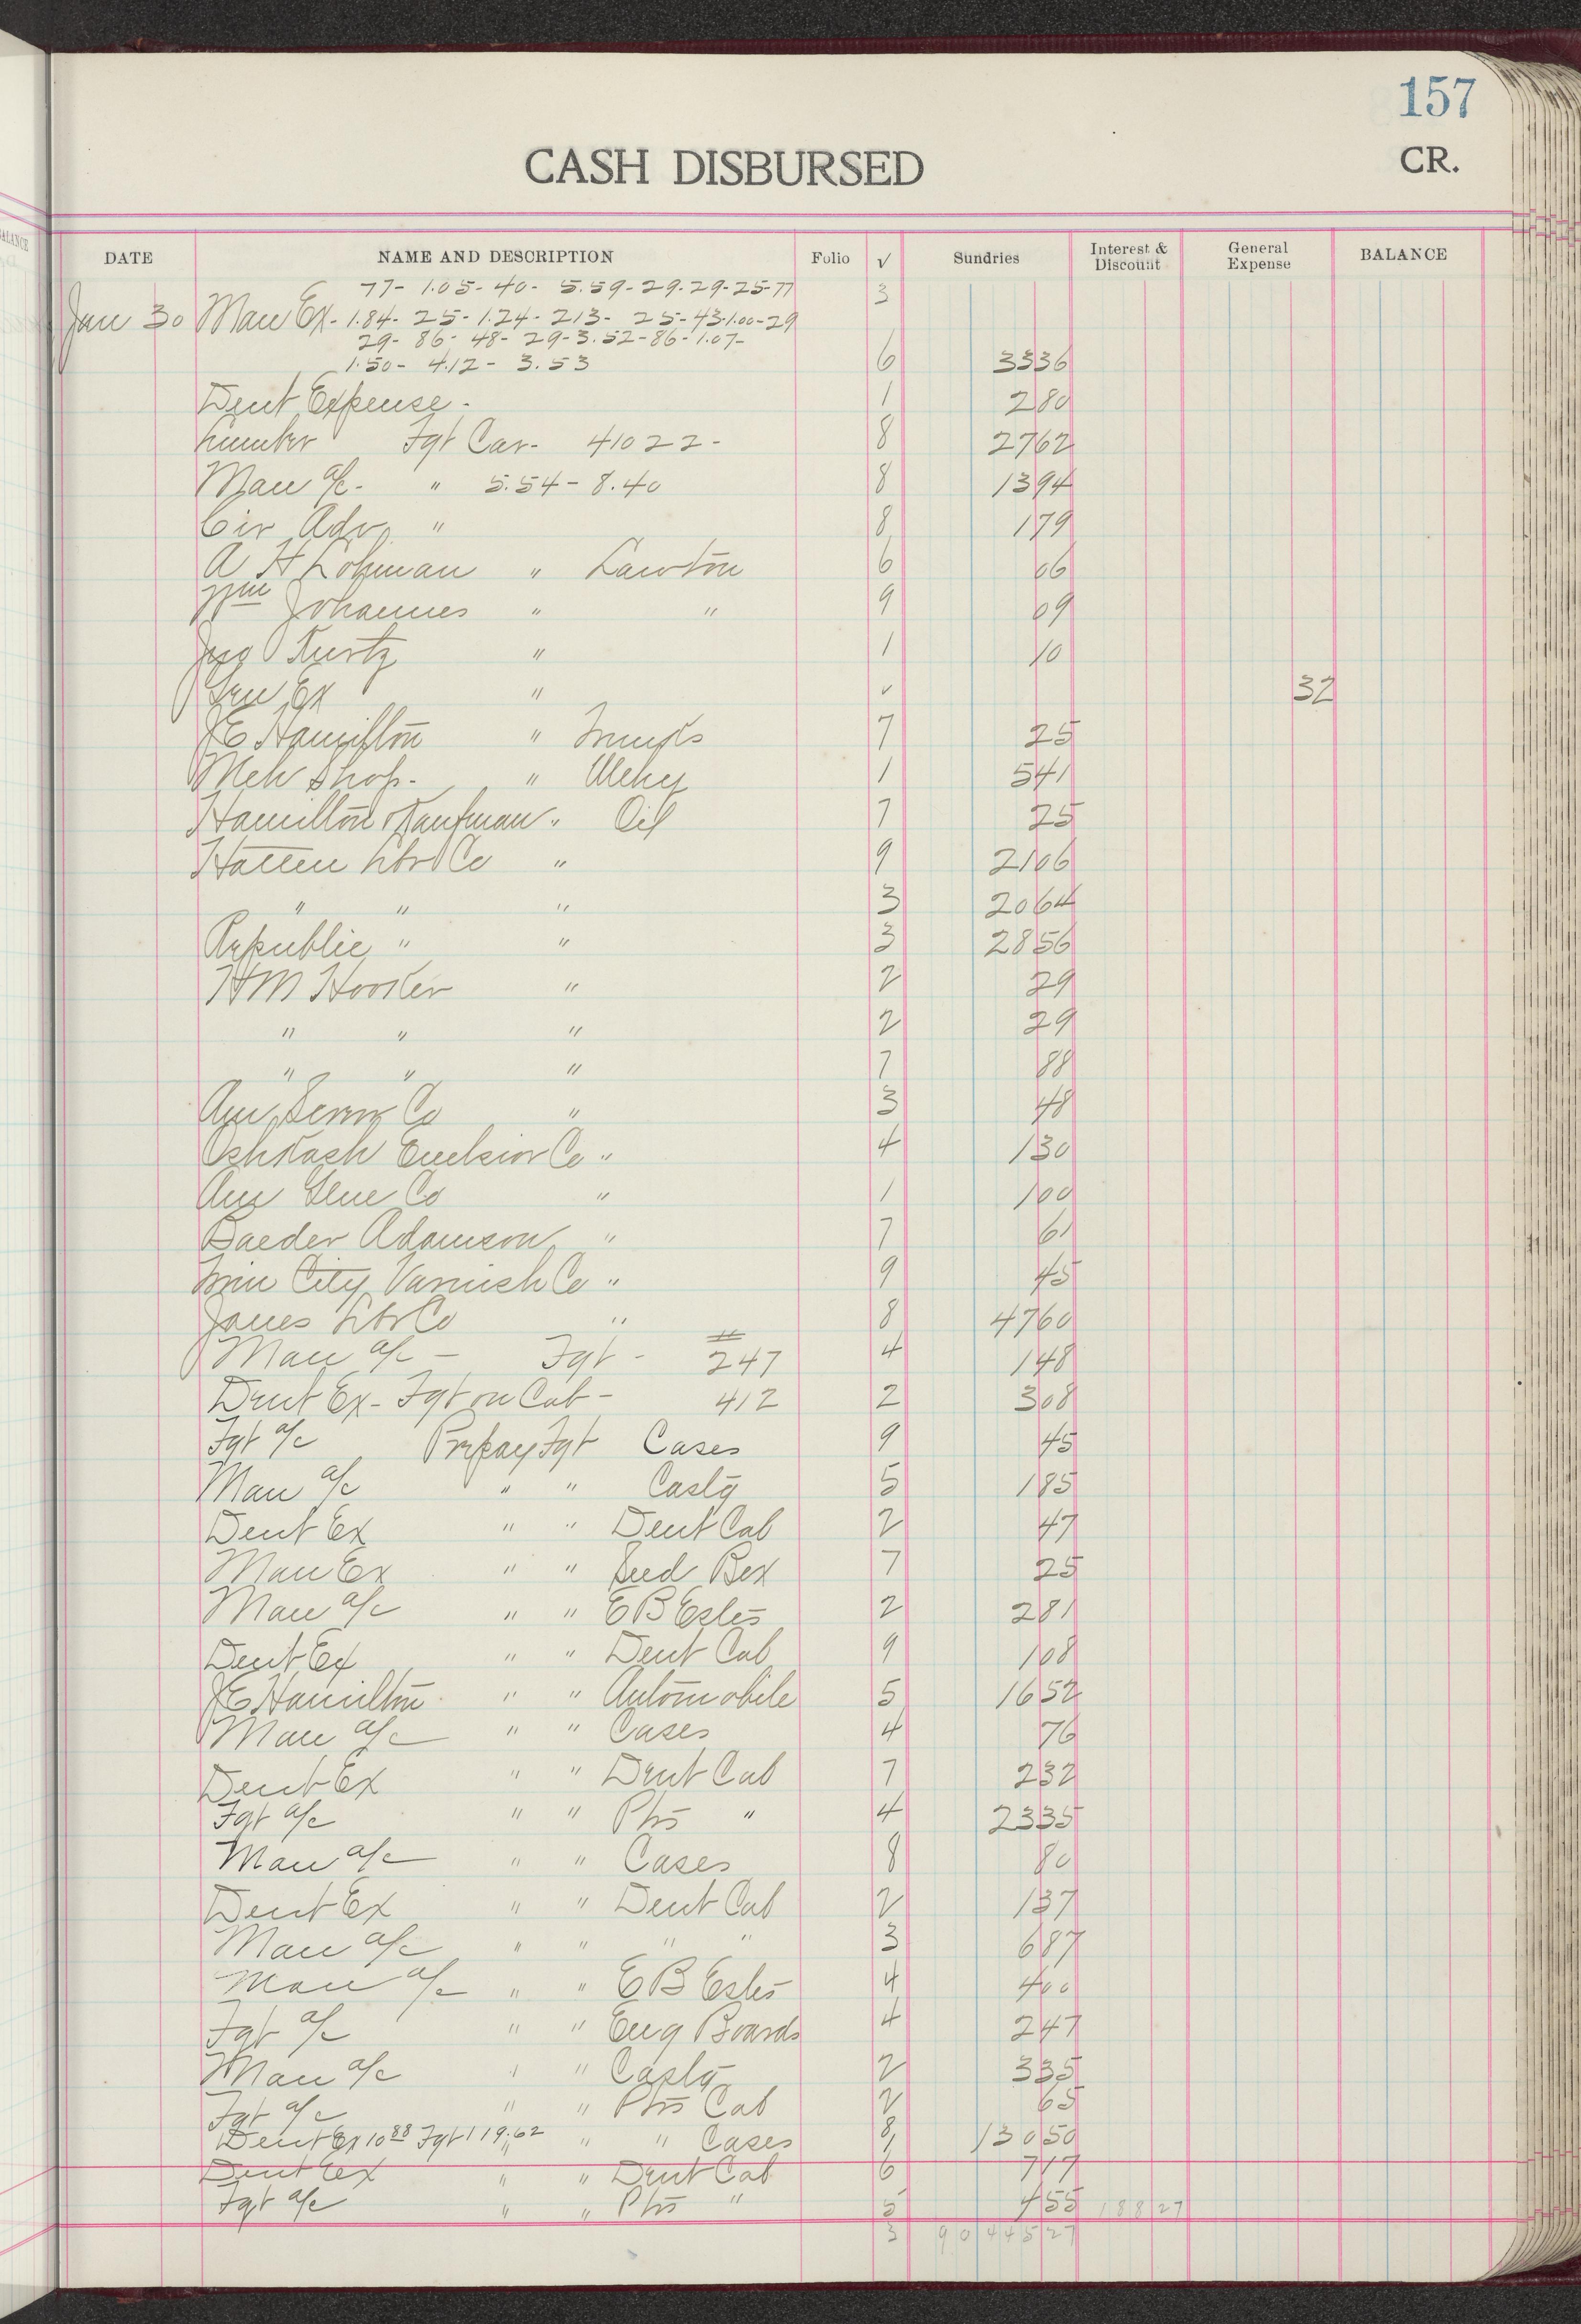 157
CASH DISBURSED
CR.
DATE NAME AND DESCRIPTION Folio √ Sundries Interest & Discount General Expense BALANCE
77- 1.05- 40- 5.59- 29- 29- 25- 77 3
Jan 30 Man Ex- 1.84- 25- 1.24- 213- 25- 43- 1.00- 29
29- 86- 48- 29- 3.52- 86- 1.07-
1.50- 4.12- 3.53 6 3336
Dent Expense- 1 280
Lumber Fgt Car- 41022- 8 2762
Man a/c- " 5.54- 8.40 8 1394
Cir Adv " 8 179
A H Lohman " Lawton 6 06
Wm Johannes " " 9 09
Jno Kurtz " 1 10
Gen Ex " √ 32
JE Hamilton " Trunks 7 25
Mch Shop- " Mchy 1 541
Hamilton & Kaufman " Oil 7 25
Hatten Lbr Co " 9 2106
" " " 3 2064
Republic " " 3 2856
HM Hooker " 2 29
" " " 2 29
" " " 7 88
Am Screw Co " 3 48
Oshkosh Excelsior Co " 4 130
Am Glue Co " 1 100
Baeder Adamson " 7 61
Twin City Varnish Co " 9 45
Janes Lbr Co " 8 4760
Man a/c - Fgt - # 247 4 148
Dent Ex- Fgt on Cab- 412 2 308
Fgt a/c Prepay Fgt Cases 9 45
Man a/c " " Castg 5 185
Dent Ex " " Dent Cab 2 47
Man Ex " " Seed Box 7 25
Man a/c " " E B Estes 2 281
Dent Ex " " Dent Cab 9 108
JE Hamilton " " Automobile 5 1652
Man a/c " " Cases 4 76
Dent Ex " " Dent Cab 7 232
Fgt a/c " " Ptrs " 4 2335
Man a/c " " Cases 8 80
Dent Ex " " Dent Cab 2 137
Man a/c " " " " 3 687
Man a/c " " E B Estes 4 400
Fgt a/c " " Eng Boards 4 247
Man a/c " " Castg 2 335
Fgt a/c " " Ptrs Cab 2 65
Dent Ex 10 88 Fgt 119.62 " " " Cases 8 13050
Dent Ex " " Dent Cab 6 717
Fgt a/c " " Ptrs " 5 455 188 27
3 90 445 27